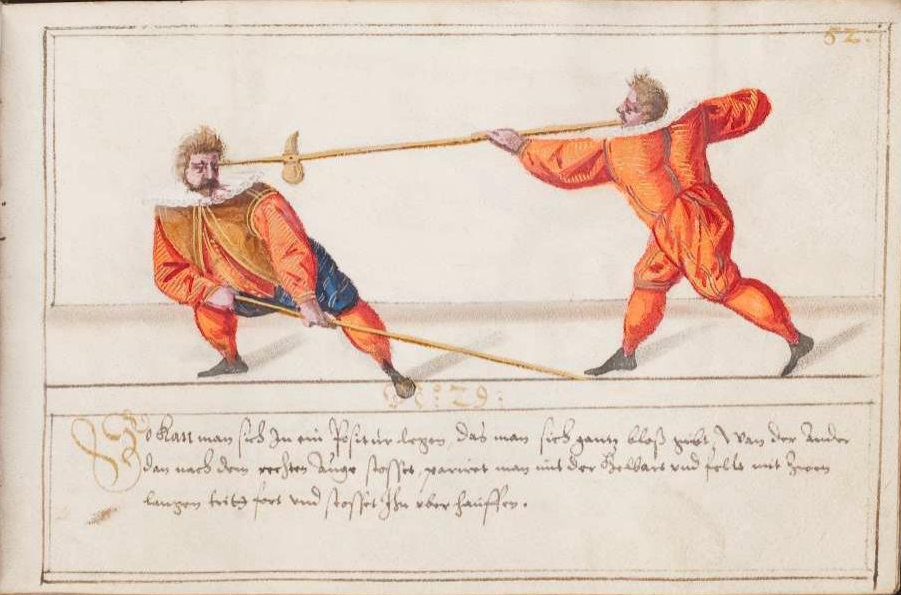 52.
N: 29:
So kan man sich In ein Positur legen, das man sich gantz bloß gibt, Wan der Ander
dan nach dem rechten Auge stosset, pariret man mit der Helbart vnd felt mit
langen tritt fort vnd stosset Ihn vber hauffen.